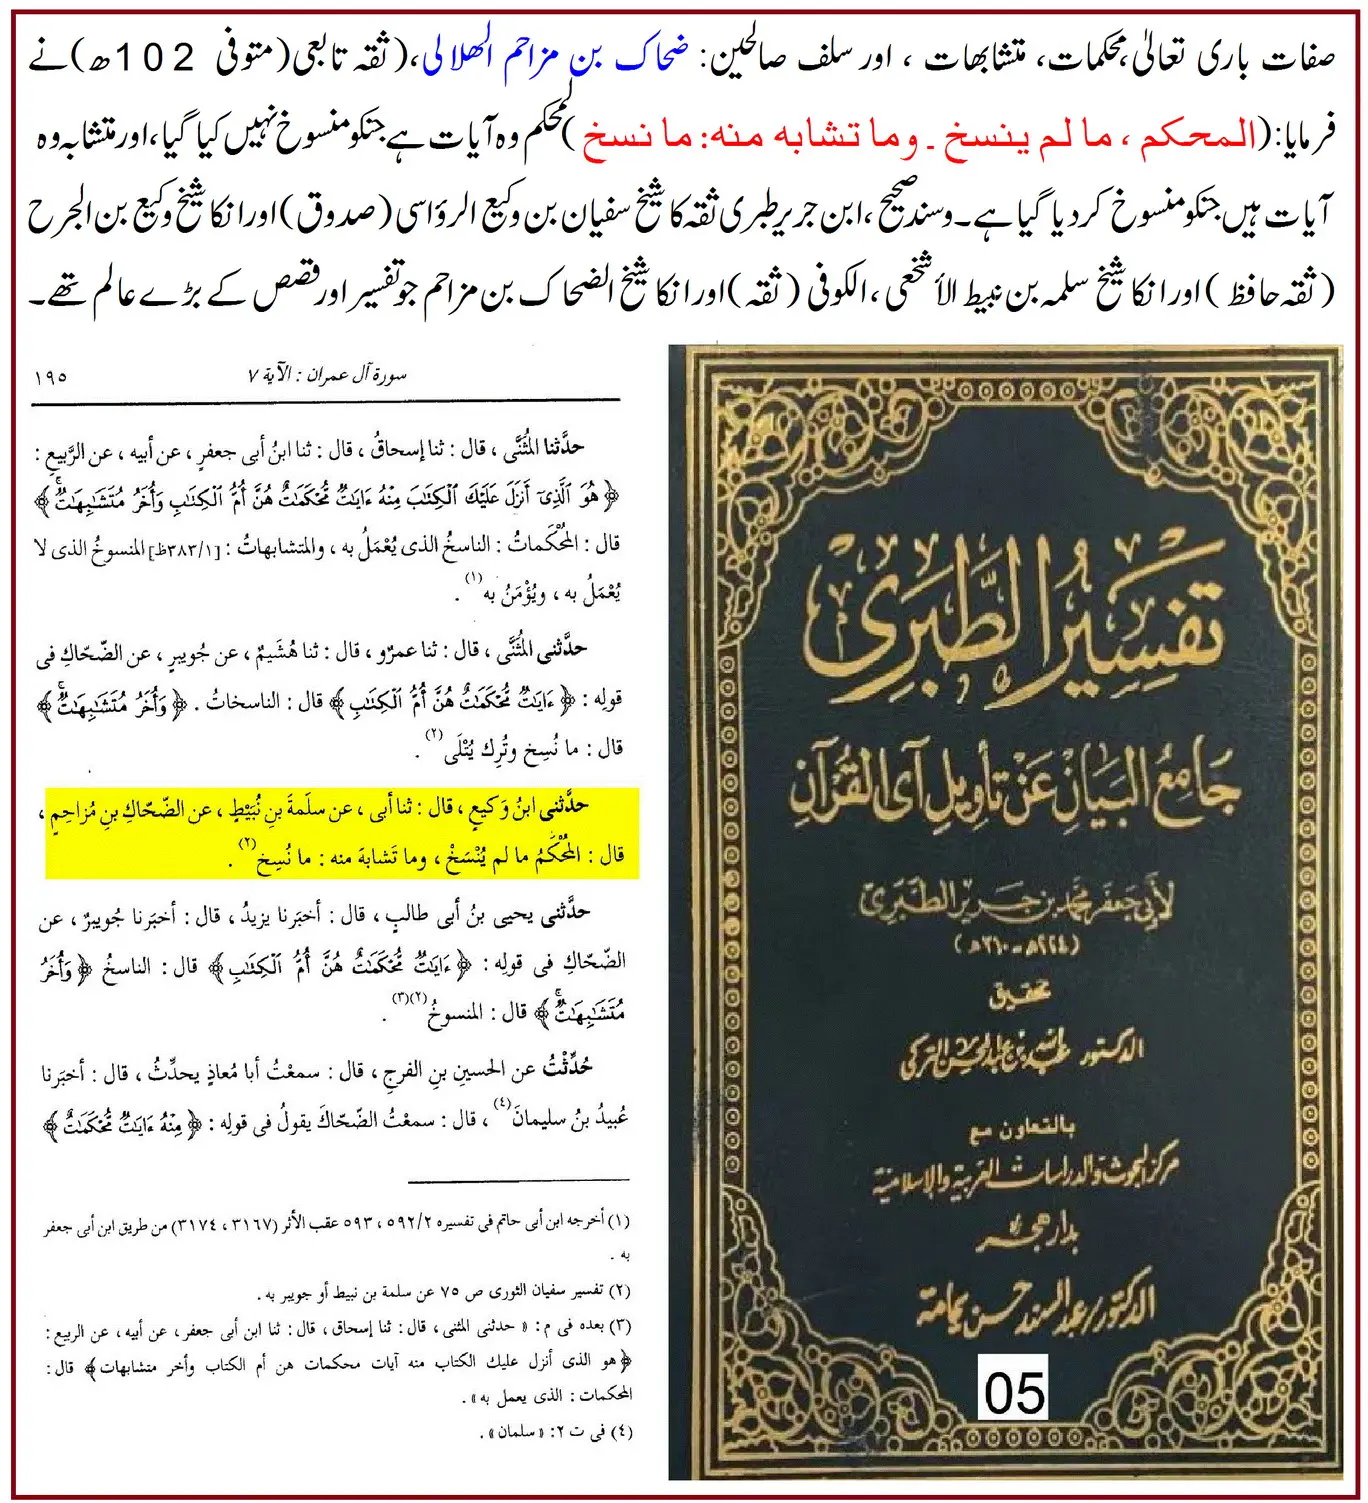 صفات باری تعالیٰ، محکمات، متشابهات ، اور سلف صالحین: ضحاک بن مزاحم الهلالی،( ثقہ تابعی (متوفی 102ھ)نے
فرمایا:(المحکم ، ما لم ینسخ ۔ وما تشابه منه: ما نسخ )لمحکم وہ آیات ہے جنکو منسوخ نہیں کیا گیا، اور متشابہ وہ
آیات ہیں جنکو منسوخ کر دیا گیا ہے۔ وسندہ صحیح، ابن جریر طبری ثقہ کا شیخ سفیان بن وکیع الرؤاسی (صدوق) اور انکا شیخ وکیع بن الجرح
( ثقہ حافظ ) اور انکا شیخ سلمہ بن نبیط الأشجعی ، الکوفی ( ثقہ ) اور انکا شیخ الضحاک بن مزاحم جو تفسیر اور قصص کے بڑے عالم تھے۔
سورة آل عمران : الآية ٧
١٩٥
حدَّثنا المُثَنَّى ، قال : ثنا إسحاقُ ، قال : ثنا ابنُ أبى جعفرٍ ، عن أبيه ، عن الرَّبيعِ :
﴿ هُوَ ٱلَّذِىٓ أَنزَلَ عَلَيْكَ ٱلْكِتَٰبَ مِنْهُ ءَايَٰتٌ مُّحْكَمَٰتٌ هُنَّ أُمُّ ٱلْكِتَٰبِ وَأُخَرُ مُتَشَٰبِهَٰتٌ ﴾
قال : المُحْكَماتُ : الناسخُ الذى يُعْمَلُ به ، والمتشابهاتُ : [٣٨٣/١ظ] المنسوخُ الذى لا
يُعْمَلُ به ، ويُؤْمَنُ به(١) .
حدَّثنى المُثَنَّى ، قال : ثنا عمرٌو ، قال : ثنا هُشَيمٌ ، عن جُويبرٍ ، عن الضّحّاكِ فى
قولِه : ﴿ ءَايَٰتٌ مُّحْكَمَٰتٌ هُنَّ أُمُّ ٱلْكِتَٰبِ ﴾ قال : الناسخاتُ . ﴿ وَأُخَرُ مُتَشَٰبِهَٰتٌ ﴾
قال : ما نُسِخ وتُرِك يُتْلَى(٢) .
حدَّثنى ابنُ وَكيعٍ ، قال : ثنا أبى ، عن سلَمةَ بنِ نُبَيْطٍ ، عن الضّحّاكِ بنِ مُزاحِمٍ ،
قال : المُحْكَمُ ما لم يُنْسَخْ ، وما تَشابهَ منه : ما نُسِخ(٢) .
حدَّثنى يحيى بنُ أبى طالبٍ ، قال : أخبَرنا يزيدُ ، قال : أخبَرنا جُويبرٌ ، عن
الضّحّاكِ فى قولِه : ﴿ ءَايَٰتٌ مُّحْكَمَٰتٌ هُنَّ أُمُّ ٱلْكِتَٰبِ ﴾ قال : الناسخُ ﴿ وَأُخَرُ
مُتَشَٰبِهَٰتٌ ﴾ قال : المنسوخُ(٢)(٣) .
حُدِّثْتُ عن الحسينِ بنِ الفرجِ ، قال : سمعْتُ أبا مُعاذٍ يحدِّثُ ، قال : أخبَرنا
عُبيدُ بنُ سليمانَ(٤) ، قال : سمعْتُ الضّحّاكَ يقولُ فى قولِه : ﴿ مِنْهُ ءَايَٰتٌ مُّحْكَمَٰتٌ ﴾
(١) أخرجه ابن أبى حاتم فى تفسيره ٥٩٢/٢ ، ٥٩٣ عقب الأثر (٣١٦٧ ، ٣١٧٤) من طريق ابن أبى جعفر
به .
(٢) تفسير سفيان الثورى ص ٧٥ عن سلمة بن نبيط أو جويبر به .
(٣) بعده فى م : « حدثنى المثنى ، قال : ثنا إسحاق ، قال : ثنا ابن أبى جعفر ، عن أبيه ، عن الربيع :
﴿هو الذى أنزل عليك الكتاب منه آيات محكمات هن أم الكتاب وأخر متشابهات﴾ قال :
المحكمات : الذى يعمل به » .
(٤) فى ت ٢ : « سلمان » .
تفسير الطبرى
جامع البيان عن تأويل آى القرآن
لأبى جعفر محمد بن جرير الطبرى
(٢٢٤هـ - ٣١٠هـ)
تحقيق
الدكتور عبد الله بن عبد المحسن التركى
بالتعاون مع
مركز البحوث والدراسات العربية والإسلامية
بدار هجر
الدكتور عبد السند حسن يمامة
05